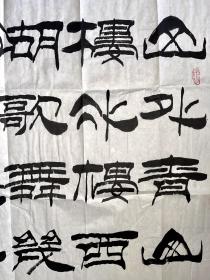 山外青山
樓外樓西
湖歌舞幾